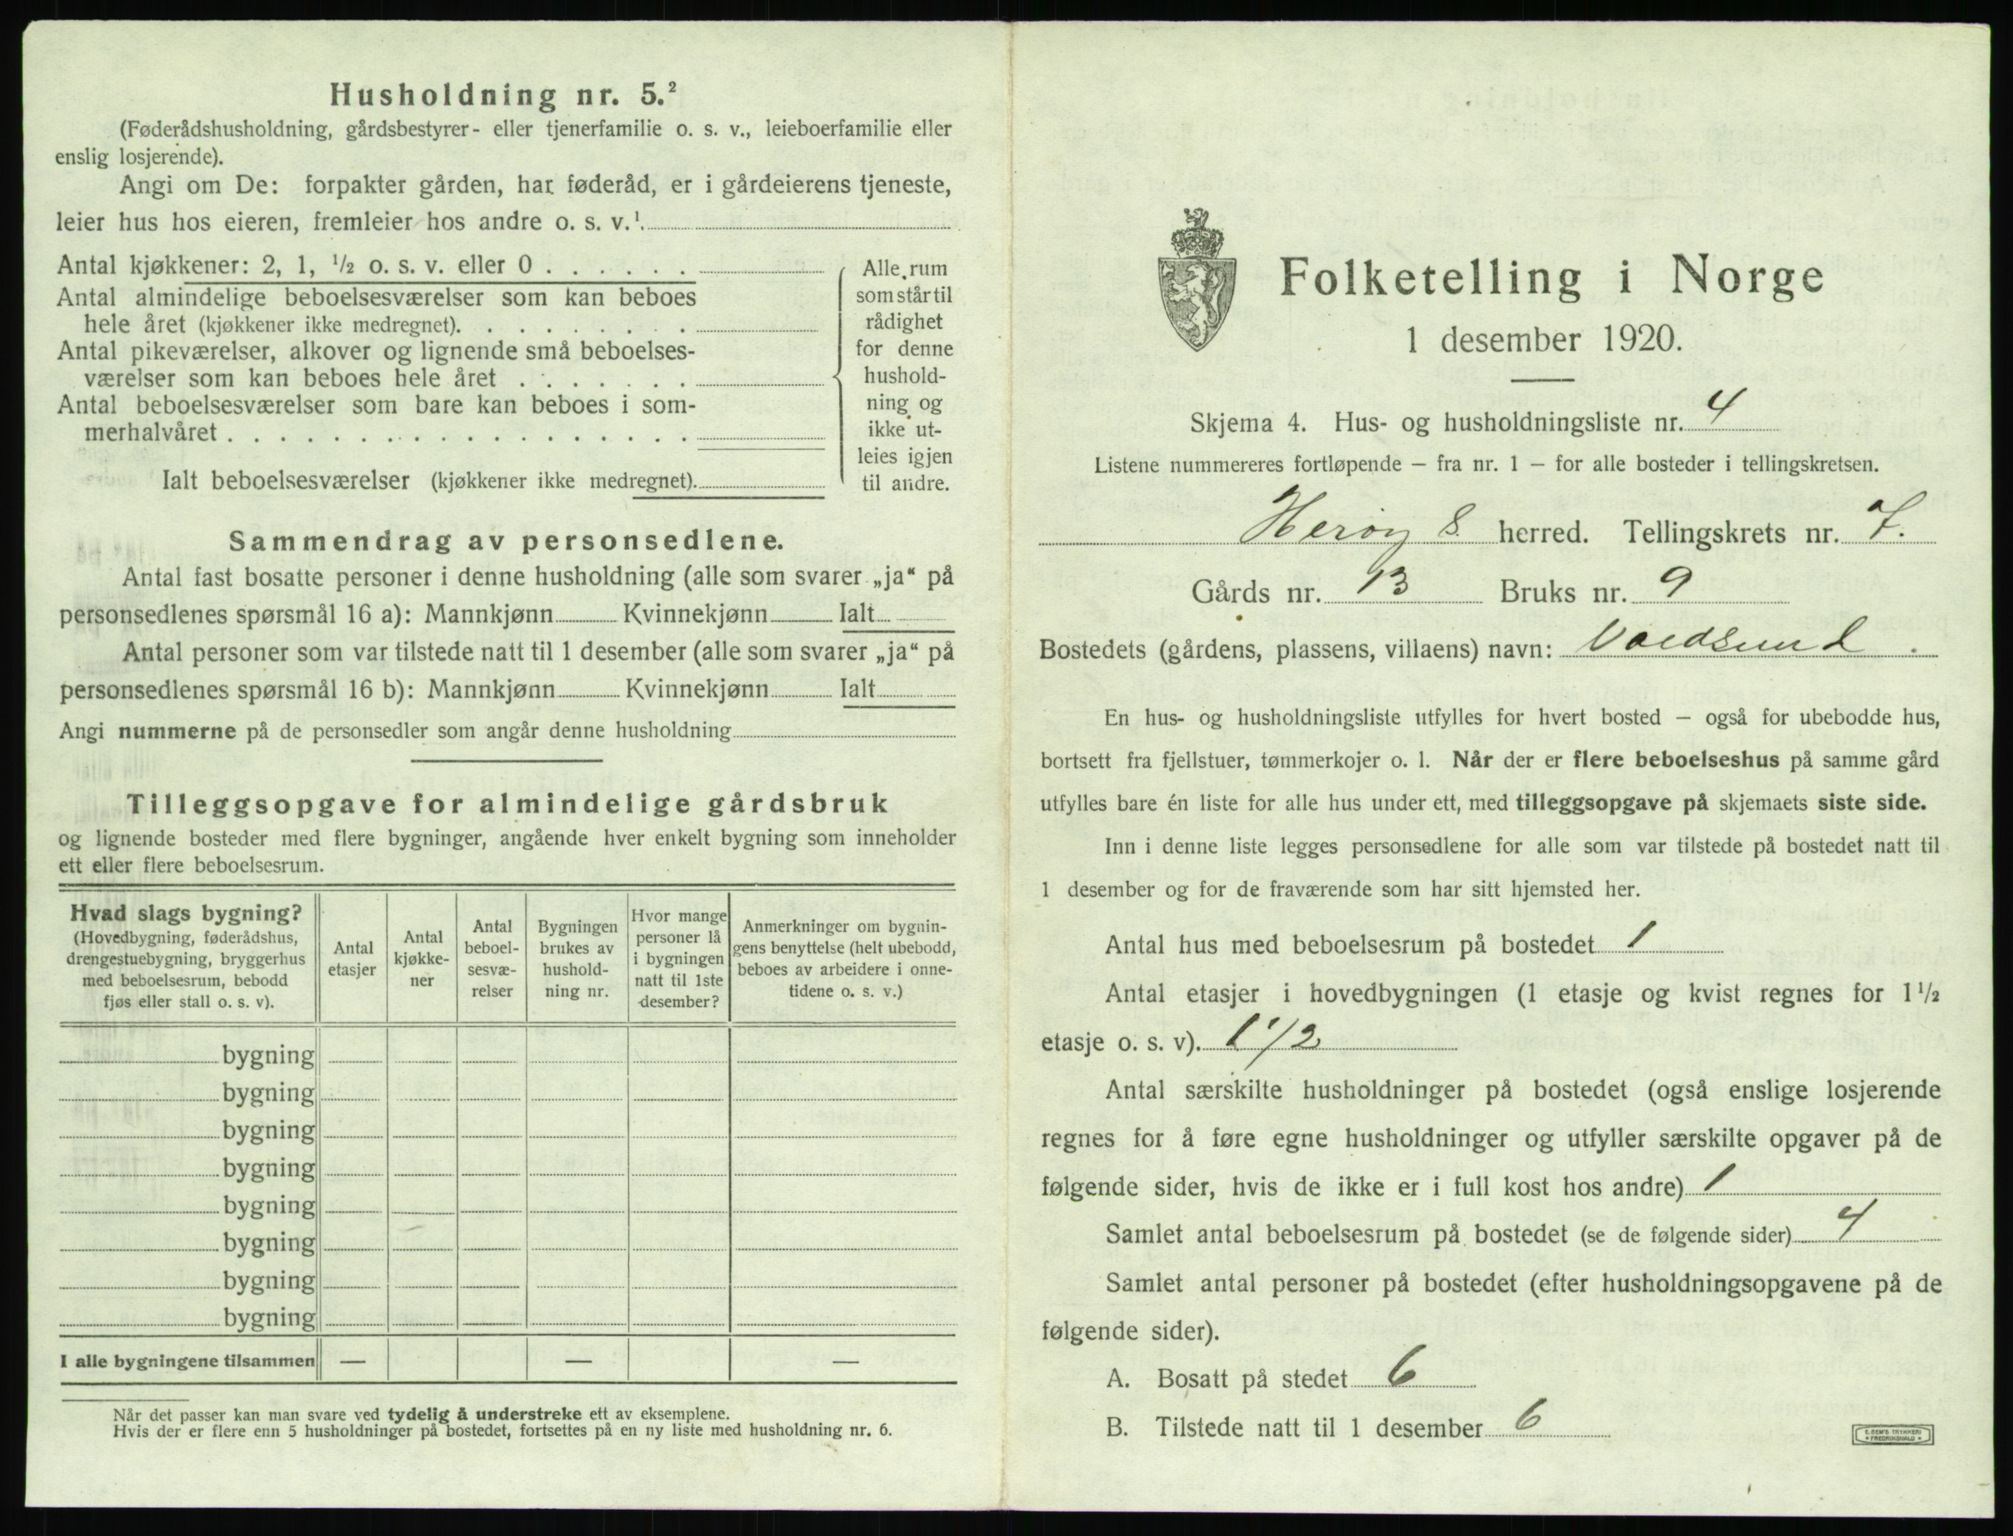 Husholdning nr. 5.²
(Føderådshusholdning, gårdsbestyrer- eller tjenerfamilie o. s. v., leieboerfamilie eller
enslig losjerende).
Angi om De: forpakter gården, har føderåd, er i gårdeierens tjeneste,
leier hus hos eieren, fremleier hos andre o. s. v.¹
Antal kjøkkener: 2, 1, ½ o. s. v. eller 0 . . . . . .
Antal almindelige beboelsesværelser som kan beboes
hele året (kjøkkener ikke medregnet). . . . . . . . .
Antal pikeværelser, alkover og lignende små beboelses-
værelser som kan beboes hele året . . . . . . .
Antal beboelsesværelser som bare kan beboes i som-
merhalvåret . . . . . . . . . . . . . . . . . .
Ialt beboelsesværelser (kjøkkener ikke medregnet).
Alle rum
som står til
rådighet
for denne
hushold-
ning og
ikke ut-
leies igjen
til andre.
Sammendrag av personsedlene.
Antal fast bosatte personer i denne husholdning (alle som svarer „ja“ på
personsedlenes spørsmål 16 a): Mannkjønn Kvinnekjønn Ialt
Antal personer som var tilstede natt til 1 desember (alle som svarer „ja“ på
personsedlenes spørsmål 16 b): Mannkjønn Kvinnekjønn Ialt
Angi nummerne på de personsedler som angår denne husholdning
Tilleggsopgave for almindelige gårdsbruk
og lignende bosteder med flere bygninger, angående hver enkelt bygning som inneholder
ett eller flere beboelsesrum.
Hvad slags bygning?
(Hovedbygning, føderådshus,
drengestuebygning, bryggerhus
med beboelsesrum, bebodd
fjøs eller stall o. s. v).
Antal
etasjer
Antal
kjøkke-
ner
Antal
beboel-
sesvæ-
relser
Bygningen
brukes av
hushold-
ning nr.
Hvor mange
personer lå
i bygningen
natt til 1ste
desember?
Anmerkninger om bygnin-
gens benyttelse (helt ubebodd,
beboes av arbeidere i onne-
tidene o. s. v.)
bygning
bygning
bygning
bygning
bygning
bygning
bygning
bygning
I alle bygningene tilsammen — — —
Når det passer kan man svare ved tydelig å understreke ett av eksemplene.
Hvis der er flere enn 5 husholdninger på bostedet, fortsettes på en ny liste med husholdning nr. 6.
Folketelling i Norge
1 desember 1920.
Skjema 4. Hus- og husholdningsliste nr. 4
Listene nummereres fortløpende – fra nr. 1 – for alle bosteder i tellingskretsen.
Herøy S. herred. Tellingskrets nr. 7.
Gårds nr. 13 Bruks nr. 9
Bostedets (gårdens, plassens, villaens) navn: Voldsund
En hus- og husholdningsliste utfylles for hvert bosted – også for ubebodde hus,
bortsett fra fjellstuer, tømmerkojer o. l. Når der er flere beboelseshus på samme gård
utfylles bare én liste for alle hus under ett, med tilleggsopgave på skjemaets siste side.
Inn i denne liste legges personsedlene for alle som var tilstede på bostedet natt til
1 desember og for de fraværende som har sitt hjemsted her.
Antal hus med beboelsesrum på bostedet 1
Antal etasjer i hovedbygningen (1 etasje og kvist regnes for 1½
etasje o. s. v). 1½
Antal særskilte husholdninger på bostedet (også enslige losjerende
regnes for å føre egne husholdninger og utfyller særskilte opgaver på de
følgende sider, hvis de ikke er i full kost hos andre) 1
Samlet antal beboelsesrum på bostedet (se de følgende sider) 4
Samlet antal personer på bostedet (efter husholdningsopgavene på de
følgende sider).
A. Bosatt på stedet 6
B. Tilstede natt til 1 desember 6
E. SEM'S TRYKKERI
FREDRIKSHALD